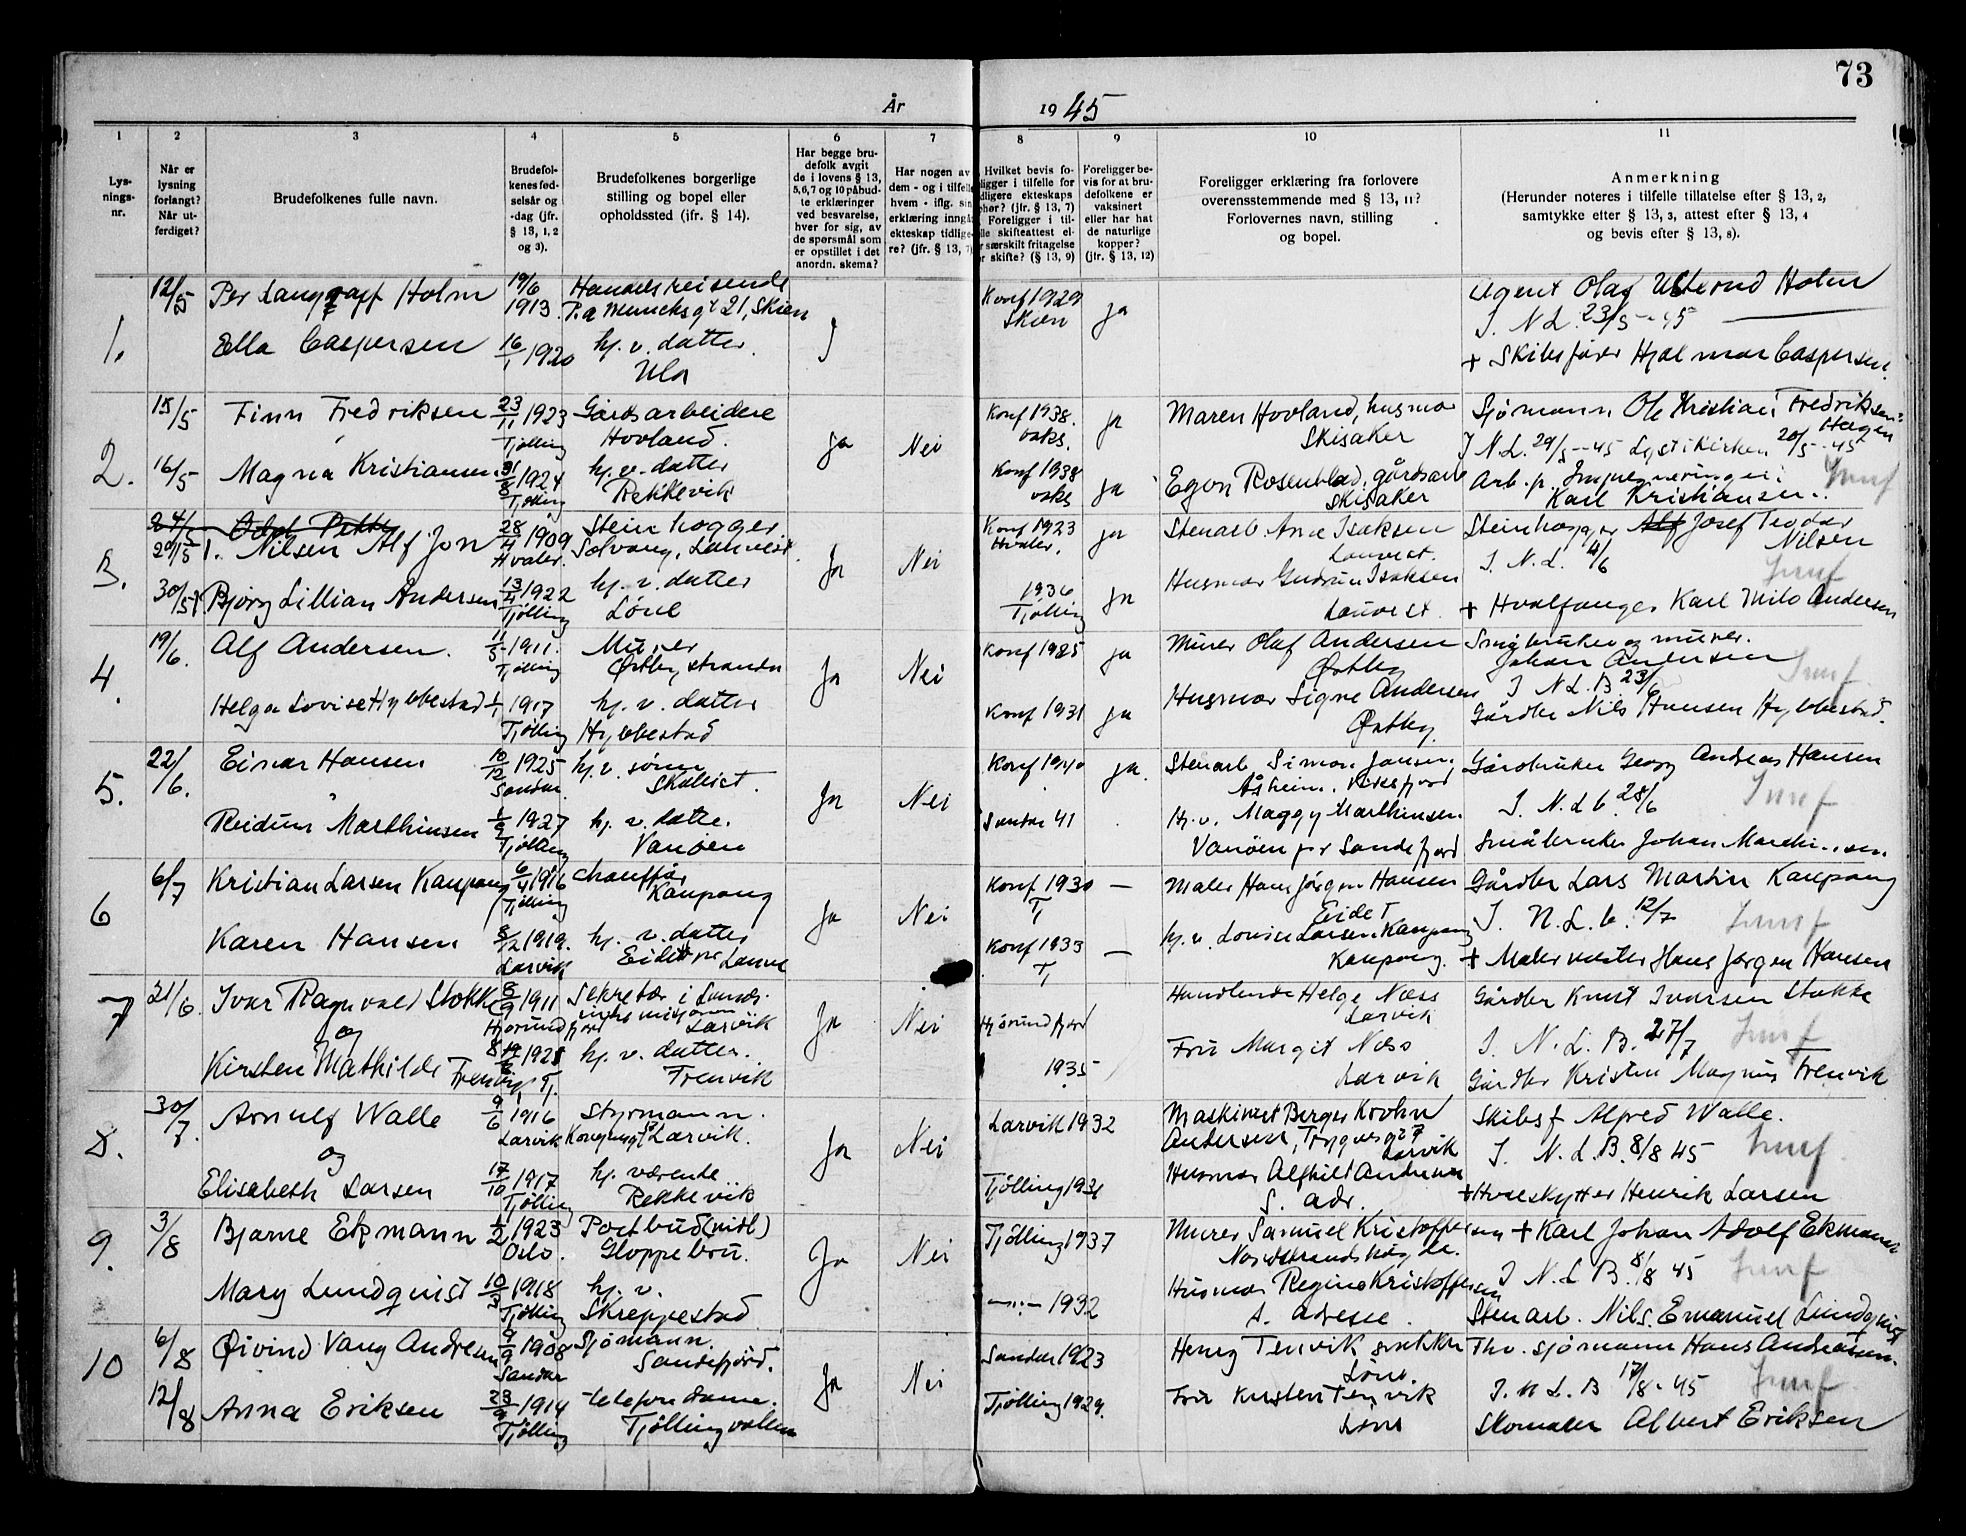 73
År 1945
1 2 3 4 5 6 7 8 9 10 11
Lys-
nings-
nr.
Når er
lysning
forlangt?
Når ut-
ferdiget?
Brudefolkenes fulle navn.
Brudefol-
kenes fød-
selsår og
-dag (jfr.
§ 13, 1, 2
og 3).
Brudefolkenes borgerlige
stilling og bopel eller
opholdssted (jfr. § 14).
Har begge bru-
defolk avgit
de i lovens § 13,
5,6,7 og 10 påbud-
te erklæringer
ved besvarelse,
hver for sig, av
de spørsmål som
er opstillet i det
anordn. skema?
Har nogen av
dem - og i tilfelle
hvem - iflg. sin
erklæring inngå
ekteskap tidlige-
re? (jfr. § 13, 7)
Hvilket bevis fo-
ligger i tilfelle for
dligere ekteskaps
phør? (jfr. § 13, 7)
Foreligger i til-
lle skifteattest el-
r særskilt fritagelse
r skifte? (§ 13, 9)
Foreligger be-
vis for at bru-
defolkene er
vaksinert
eller har hat
de naturlige
kopper?
(jfr. § 13, 12)
Foreligger erklæring fra forlovere
overensstemmende med § 13, 11?
Forlovernes navn, stilling
og bopel.
Anmerkning
(Herunder noteres i tilfelle tillatelse efter § 13, 2,
samtykke efter § 13, 3, attest efter § 13, 4
og bevis efter § 13, 8).
1.
12/5 Per Holm 19/6 1913 Handelsreisende
P.a Muncks gt 21, Skien
Konf 1929 Skien ja
Agent Olaf Holm
I. N L. 23/5 - 45
Ella Caspersen 16/1 1920 hj. v. datter.
Ula
+ Skibsfører Hjalmar Caspersen.
2.
15/5 Finn Fredriksen 23/11 1923 Tjølling Gårdsarbeidere
Hovland.
ja Nei
Konf 1938. vaks. ja
Maren Hovland, husmor
Skisaker
Sjømann Ole Kristian Fredriksen
Hagen
I N.L. 29/5 - 45 Lyst i kirken 20/5 - 45
16/5 Magna Kristiansen 31/8 1924 Tjølling hj. v. datter
Rekkevik
Konf 1938 vaks ja
Egon Rosenblad, gårdsarb
Skisaker
Arb. p. Impregneringen:
Karl Kristiansen.
3.
24/5
29/5 Nilsen Alf Jon 28/4 1909 Hvaler. Steinhogger
Solvang, Lauvest
Ja Nei
Konf 1923 Hvaler. ja
Stenarb Arne Isaksen
Lauvest.
Steinhogger Alf Josef Teodor
Nilsen
I. N. L. 4/6
30/5 Bjørg Lillian Andersen 13/4 1922 Tjølling hj. v. datter
Løve
1936 Tjølling ja
Husmor Gudrun Isaksen
Lauvest
+ Hvalfanger Karl Milo Andersen
4.
19/6. Alf Andersen. 1/5 1911. Tjølling Murer
Østby, stranda
Ja Nei
Konf 1925 ja
Murer Olaf Andersen
Østby
Småbruker og murer.
Johan Andersen
I N.L. B. 23/6
Helga Lovise Hybbestad 1/1 1917 Tjølling hj. v. datter
Hybbestad
Konf 1931 ja
Husmor Signe Andersen
Østby.
Gårdbr Nils Hansen Hybbestad.
5.
22/6. Einar Hansen 10/12 1925 Sandar. hj. v. sønn
Skallist.
Ja Nei
Konf 1940 ja.
Stenarb Simon Jansen.
Åsheim.
Gårdbruker Georg Andreas Hansen
I. N. L b. 28/6
Reidun Marthinsen 1/9 1927 Tjølling hj. v. datter.
Vanøen
Sandar 41
Hj. v. Maggy Marthinsen.
Vanøen pr Sandefjord
Småbruker Johan Marthinsen.
6
6/7 Kristian Larsen Kaupang 6/4 1916 Tjølling chauffør
Kaupang
Ja Nei
Konf 1930 Tj —
Maler Hans Jørgen Hansen
Eidet
Gårdbr Lars Martin Kaupang
I. N. L. b. 12/7
Karen Hansen 8/12 1919. Larvik hj. v. datter
Eidet pr Lauve
Konf 1933 Tj —
hj. v. Lovise Larsen Kaupang
Kaupang.
+ Malermester Hans Jørgen Hansen
7
21/6. Ivar Ragnvald Stokke 8/9 1911 Hjørundfjord Sekretær i
Larvik
Ja Nei
Hjørundfjord
Handlende Helge Næss
Larvik
Gårdbr Knut Ivarsen Stokke
I. N. L. B. 27/7
og
Kirsten Mathilde Frenvik hj. v. datter.
Frenvik
1935
Fru Margit Næss
Larvik
Gårdbr Kristen Magnus Frenvik
8.
30/7. Arnulf Walle 9/6 1916 Larvik Styrmann.
Larvik.
Ja Nei
Larvik 1932
Maskinist Berger Krohn
Andersen, Larvik
Skibsf Alfred Walle.
I. N. L. B. 8/8 45
og
Elisabeth Larsen 17/10 1917 Tjølling hj. værende.
Rekkevik
Tjølling 1931
Husmor Alfhild Andersen
S. adr.
+ Hvalskytter Henrik Larsen
9.
3/8 Bjarne Ekmann 1/2 1923 Oslo. Postbud (midl)
Gloppebru.
Ja Nei
Tjølling 1937
Murer Samuel Kristoffersen
+ Karl Johan Adolf Ekmann
I N. L B. 8/8 45
Mary Lundqvist 10/3 1918 Tjølling hj. v.
Skreppestad
—"— 1932
Husmor Regine Kristoffersen
s. adresse.
Stenarb. Nils Emanuel Lundqvist
10
6/8 Øivind Vang Andresen 9/9 1908 Sandar Sjømann.
Sandefjord.
Ja Nei
Sandar 1923
Henry Tenvik
Løve.
Thv. sjømann Hans Andreasen.
I. N L. B 17/8 - 45
12/8 Anna Eriksen 23/9 1914 Tjølling telefondame.
Tjøllingvollen
Tjølling 1929.
Fru Kirsten Tenvik
Løve
Skomaker Albert Eriksen